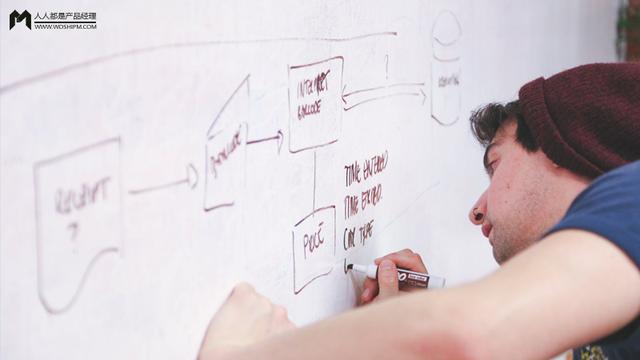 人人都是产品经理
WWW.WOSHIPM.COM
RECEIPT
?
BARCODE
INTERPRET
BARCODE
?
PRICE
TIME ENTERED
TIME EXITED
CAR TYPE